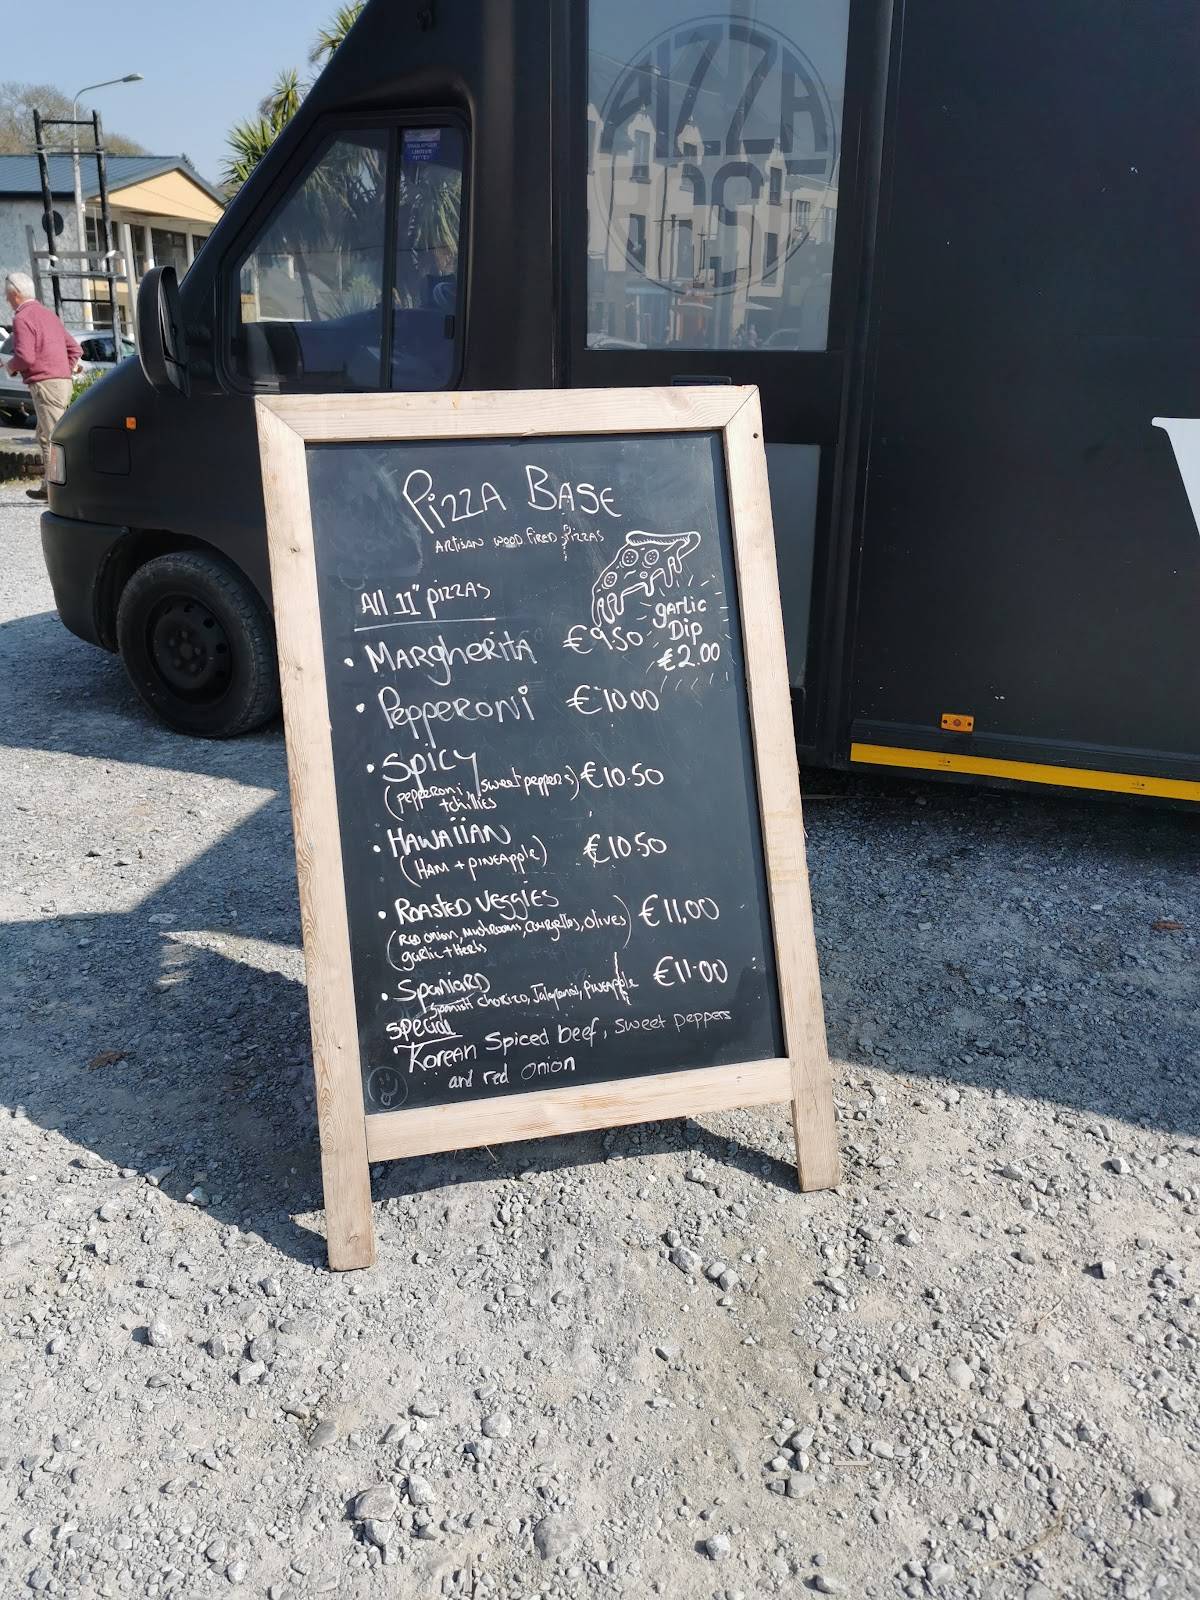 PIZZA
BASE
PIZZA BASE
ARTISAN WOOD FIRED PIZZAS
All 11" pizzas
GARLIC
DIP
€2.00
• MARGHERITA €9.50
• Pepperoni €10.00
• Spicy €10.50
(pepperoni, sweet peppers)
+chillies
• HAWAIIAN €10.50
(HAM + pineapple)
• ROASTED VEGGIES €11,00
(Red onion, mushrooms, courgettes, olives)
garlic + Herbs
• Spaniard €11.00
Spanish chorizo, Jalapenos, pineapple
special
• Korean Spiced beef, sweet peppers
and red onion